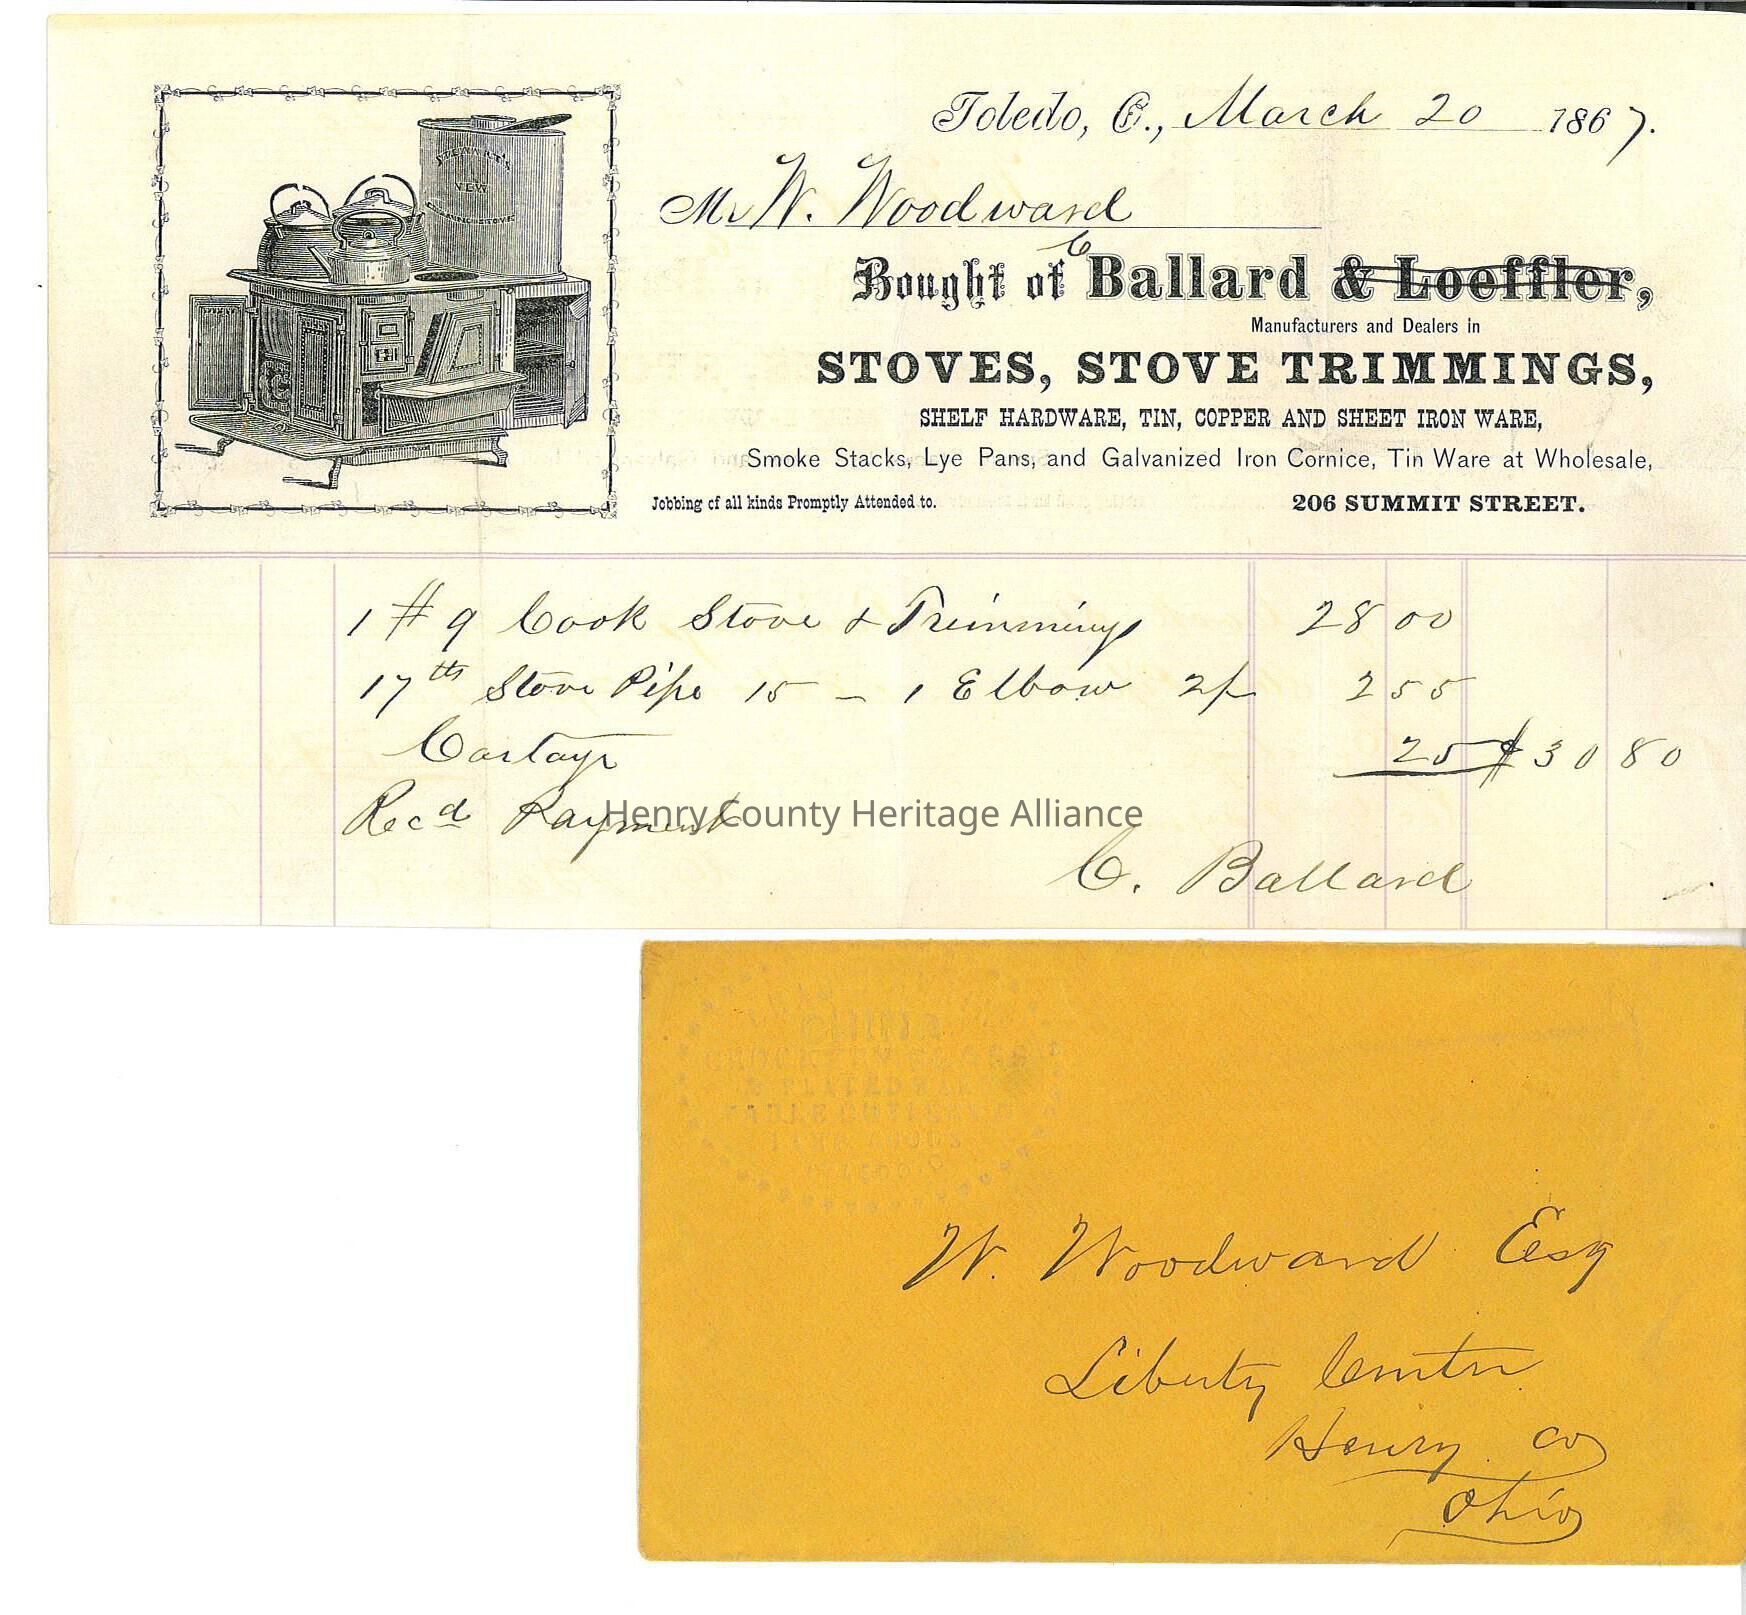 Toledo, O., March 20 1867.
Mr W. Woodward
C
Bought of Ballard & Loeffler,
Manufacturers and Dealers in
STOVES, STOVE TRIMMINGS,
SHELF HARDWARE, TIN, COPPER AND SHEET IRON WARE,
Smoke Stacks, Lye Pans, and Galvanized Iron Cornice, Tin Ware at Wholesale,
Jobbing of all kinds Promptly Attended to. 206 SUMMIT STREET.
STEWART'S
NEW
1 # 9 Cook Stove & Trimmings 28 00
17 lbs Stove Pipe 15 - 1 Elbow 2/- 2 55
Cartage 25 $30 80
Recd Payment
Henry County Heritage Alliance
C. Ballard
CROCKERY GLASS
& PLATED WARE
TABLE CUTLERY
TOLEDO O
W. Woodward Esq
Liberty Center
Henry Co
Ohio